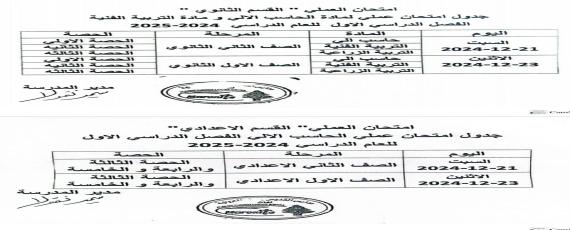 امتحان العملي " القسم الثانوي "
جدول امتحان عملي لمادة الحاسب الالي و مادة التربية الفنية
الفصل الدراسي الاول للعام الدراسي 2024-2025
اليوم المادة المرحلة الحصة
السبت 21-12-2024 حاسب الي الصف الثاني الثانوي الحصة الاولي
التربية الفنية الحصة الثانية
التربية الزراعية الحصة الثالثة
الاثنين 23-12-2024 حاسب الي الصف الاول الثانوي الحصة الاولي
التربية الفنية الحصة الثانية
التربية الزراعية الحصة الثالثة
مدير المدرسة
امتحان العملي" القسم الاعدادي"
جدول امتحان عملي الحاسب الالي الفصل الدراسي الاول
للعام الدراسي 2024-2025
اليوم المرحلة الحصة
السبت 21-12-2024 الصف الثاني الاعدادي الحصة الثالثة والرابعة و الخامسة
الاثنين 23-12-2024 الصف الاول الاعدادي الحصة الثالثة والرابعة و الخامسة
مدير المدرسة